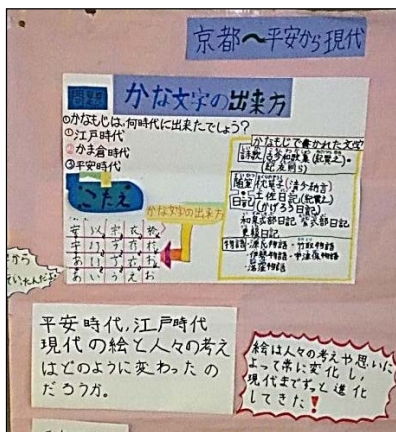 京都～平安から現代
問題
かな文字の出来方
①かなもじは、何時代に出来たでしょう?
①江戸時代
②かま倉時代
③平安時代
こたえ
かな文字の出来方
安 以 宇 衣 於
あ い う え お
かなもじで書かれた文学
詠歌 古今和歌集(紀貫之)・
(紀友則ら)
随筆 枕草子(清少納言)
日記 土佐日記(紀貫之)
(かげろう日記)
和泉式部日記 紫式部日記
更級日記
物語 ・源氏物語 ・竹取物語
・伊勢物語 ・宇津保物語
・落窪物語
から
平安時代,江戸時代
現代の絵と人々の考え
はどのように変わったの
だろうか。
絵は人々の考えや思いに
よって常に変化し,
現代までずっと進化
してきた!